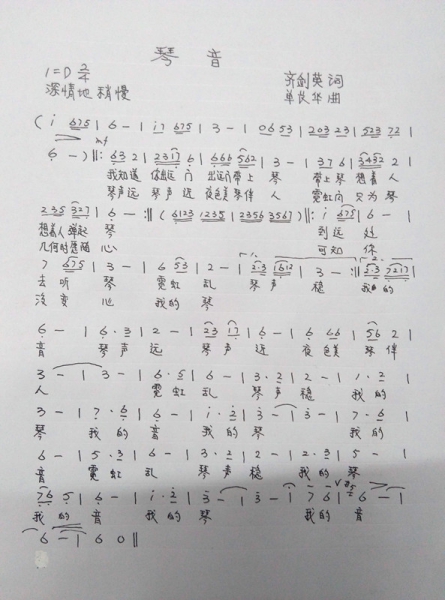 琴音
1=D 2/4 齐剑英 词
深情地 稍慢 单长华 曲
( i 675 | 6 - | i7 675 | 3 - | 06 53 | 203 23 | 523 72 |
6 - ) ‖: 63 2 | 2317 6 | 666 562 | 3 - | 37 6 | 3432 2 |
我知道 你出远门 出远门带上 琴 带上琴 想着人
琴声远 琴声近 夜色美琴伴 人 霓虹闪 只为琴
235 327 | 6 - :‖ ( 6123 1235 | 2356 3567 ) ‖: i 675 | 6 - |
想着人弹起 琴 到远处
几何时愿随 心 可知你
7 675 | 3 - | 6 53 | 2 - | 2·3 1612 | 3 - :‖ 5·3 7217 |
去听 琴 霓虹 乱 琴声 稳 我的
没变 心 我的 琴
6 - | 6·3 | 2 - | 23 17 | 6 - | 6 66 | 56 2 |
音 琴声 远 琴声 近 夜色美 琴伴
3 - | 3 - | 6·5 | 6 - | 3·2 | 2 - | 1·2 |
人 霓虹 乱 琴声 稳 我的
3 - | 7·6 | 6 - | i·2 | 3 - | 3 - | 7·6 |
琴 我的 音 我的 琴 我的
6 - | 5·3 | 6 - | 3·2 | 2 - | 2·3 | 5 - |
音 霓虹 乱 琴声 稳 我的 琴
76 5 | 6 - | i·2 | 3 - | 3 - | 7 6 | 6 - |
我的 音 我的 琴 我的 音
6 - | 6 0 ‖